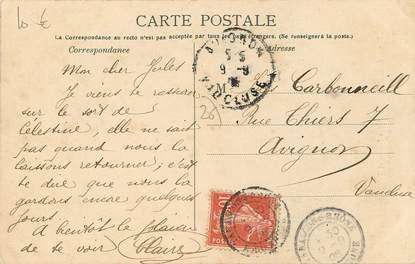 10 €
CARTE POSTALE
La Correspondance au recto n'est pas acceptée par tous les pays étrangers. (Se renseigner à la Poste).
Correspondance
Adresse
Mon cher Jules
Je viens te rassurer
sur le sort de
Célestine, elle ne sait
pas quand nous la
laissons retourner; c'est
te dire que nous la
gardons encore quelques
jours.
A bientôt le plaisir
de te voir Claire
AVIGNON
VAUCLUSE
Carbonneill
Rue Thiers 7
Avignon
Vaucluse
10